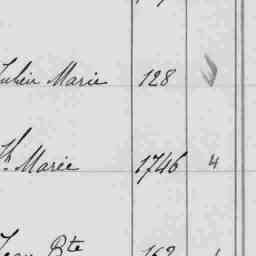 Julien Marie 128
Th. Marie 1746 4
Jean Bte 162